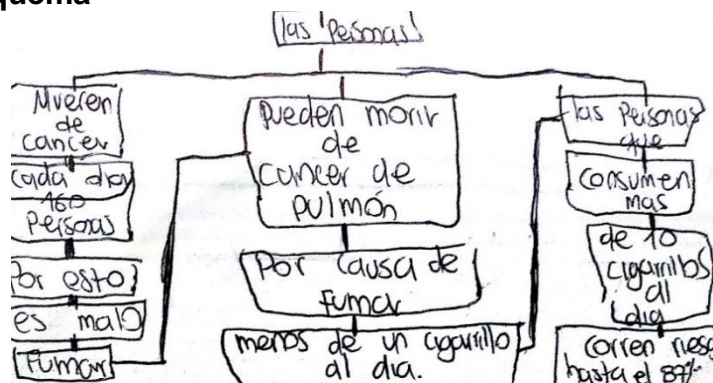 quema
las Personas
Mueren
de
cancer
cada dia
160
Personas
Por esto
es malo
Fumar
pueden morir
de
cancer de
pulmón
Por causa de
Fumar
menos de un cigarrillo
al dia.
las Personas
que
consumen
mas
de 10
cigarrillos
al
dia
corren riesg
hasta el 87%